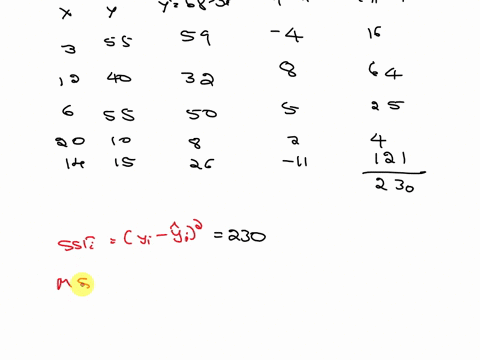 x y
3 55 59 -4 16
12 40 32 8 64
6 55 50 5 25
20 10 8 2 4
14 15 26 -11 121
230
= (yi - ŷi)² = 230
MS